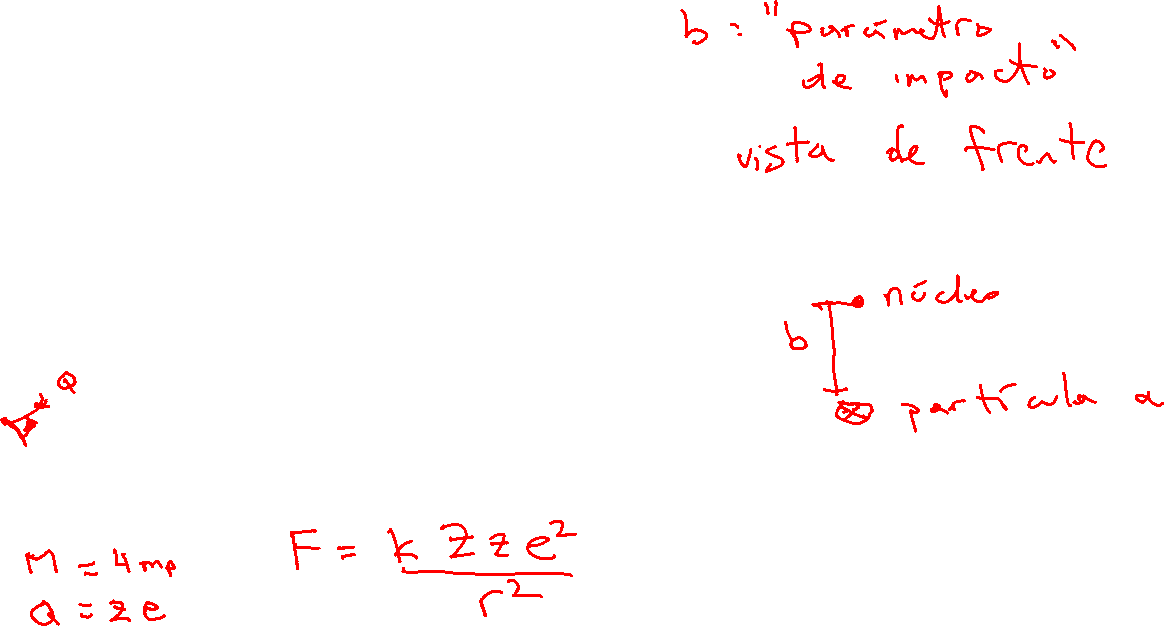 b : "parámetro
de impacto"
vista de frente
núcleo
b
partícula α
Q
M = 4 mp
Q = z e
F = k Z z e²
r²